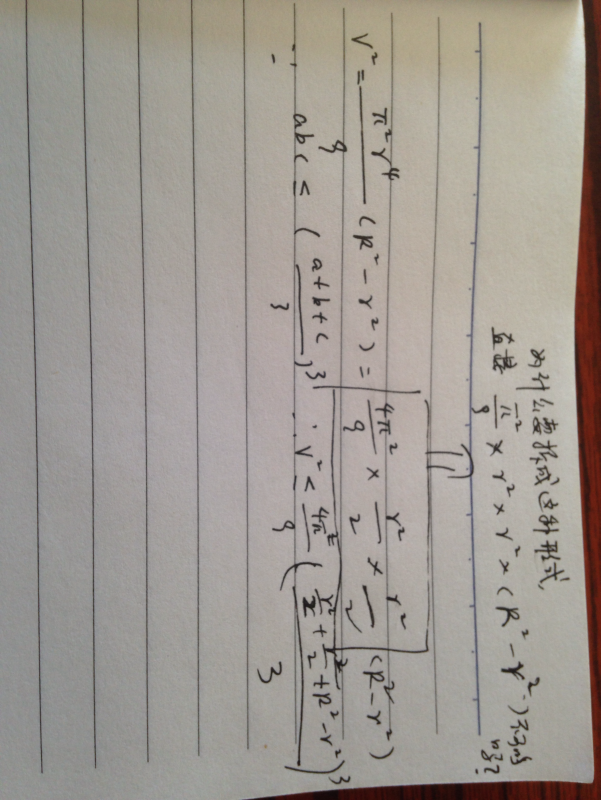 为什么要拆成这种形式,
直接 π²/9 × r² × r² × (R² - r²) 不可以吗?
V² = π²r⁴/9 (R² - r²) = 4π²/9 × r²/2 × r²/2 (R² - r²)
∵ abc ≤ (a+b+c/3)³ ∴ V² ≤ 4π²/9 (r²/2 + r²/2 + R² - r²/3)³